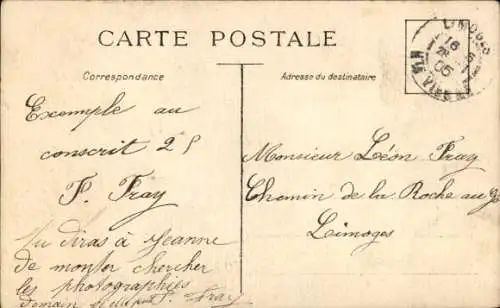 CARTE POSTALE
Correspondance
Adresse du destinataire
LIMOGES
VIENNE
Exemple au
conscrit
F. Fray
Monsieur Léon Fray
Chemin de la Roche au
Limoges
Tu diras à Jeanne
de monter chercher
les photographies
demain Fray